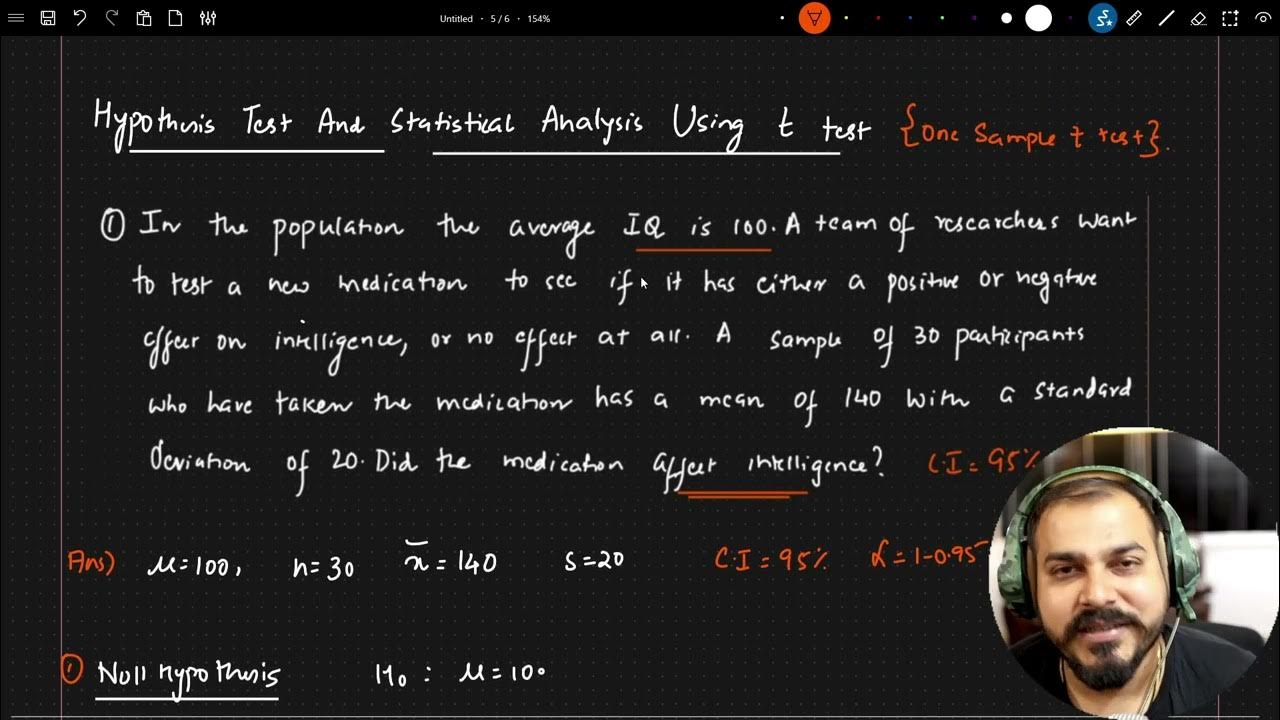 Untitled • 5 / 6 • 154%
Hypothesis Test And Statistical Analysis Using t test {One Sample t test}.
① In the population the average IQ is 100. A team of researchers want
to test a new medication to see if it has either a positive or negative
effect on intelligence, or no effect at all. A sample of 30 participants
who have taken the medication has a mean of 140 with a standard
deviation of 20. Did the medication affect intelligence? C.I = 95%
Ans) μ=100, n=30 x̄ = 140 s=20 C.I = 95% α = 1-0.95
① Null Hypothesis H₀ : μ = 100